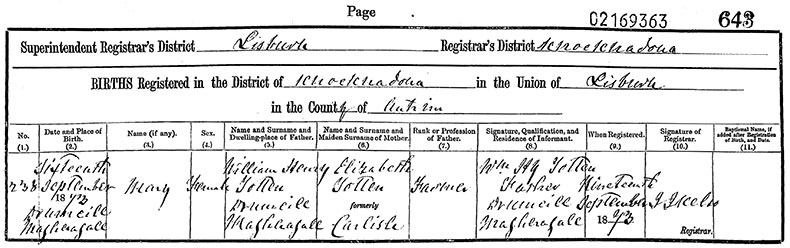 Page 02169363 643
Superintendent Registrar's District Lisburn Registrar's District Knocknadona
BIRTHS Registered in the District of Knocknadona in the Union of Lisburn
in the County of Antrim
No. (1.)
Date and Place of Birth. (2.)
Name (if any). (3.)
Sex. (4.)
Name and Surname and Dwelling-place of Father. (5.)
Name and Surname and Maiden Surname of Mother. (6.)
Rank or Profession of Father. (7.)
Signature, Qualification, and Residence of Informant. (8.)
When Registered. (9.)
Signature of Registrar. (10.)
Baptismal Name, if added after Registration of Birth, and Date. (11.)
Sixteenth
September
1873
Magheragall
Mary
Female
William Henry
Totten
Magheragall
Elizabeth
Totten
formerly
Carlisle
Farmer
Wm Hy Totten
Father
Magheragall
Nineteenth
September
1873
Registrar.